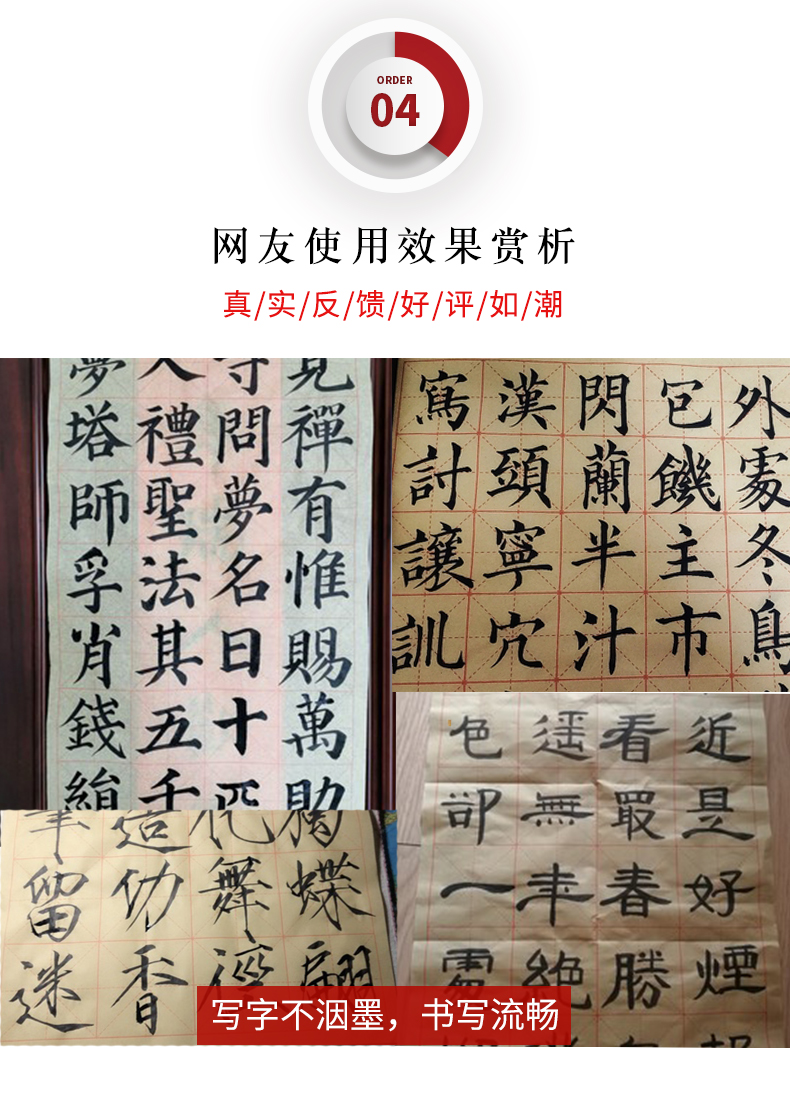 ORDER
04
网友使用效果赏析
真/实/反/馈/好/评/如/潮
夢人守見
塔禮問禪
師聖夢有
孚法名惟
肖其日賜
錢五十萬
千助
寫漢閃皀外
討頭蘭饑
讓寧半主冬
訓穴汁市鳥
色遥看近
卻無最是
一年春好
處絶勝煙
造化
留仂舞蝶
迷香徑翩
写字不洇墨，书写流畅